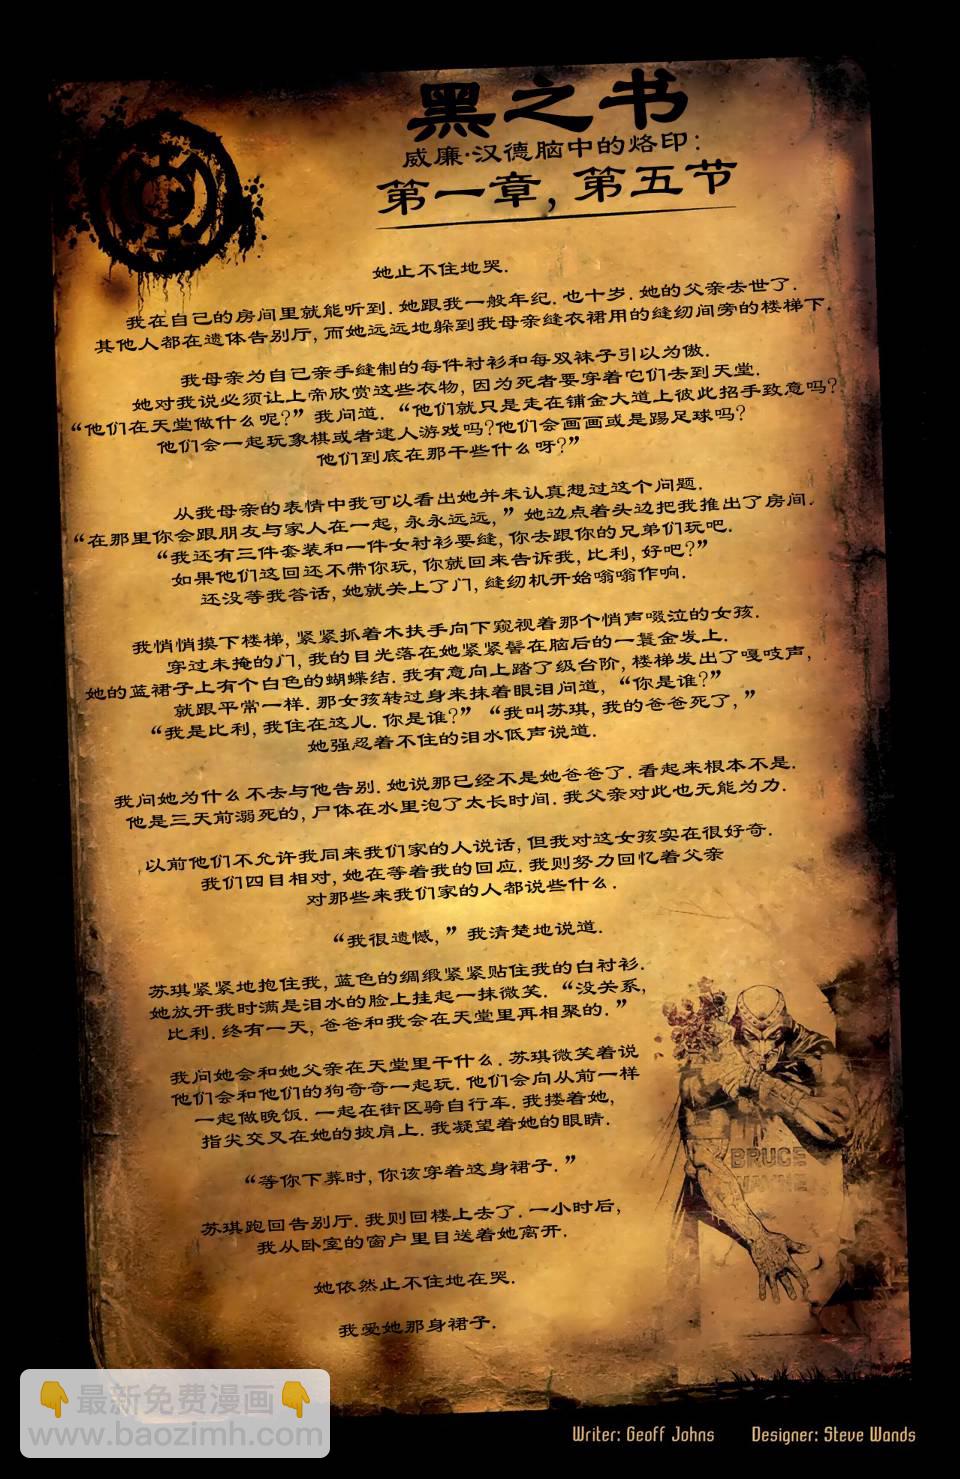 黑之书
威廉·汉德脑中的烙印:
第一章，第五节
她止不住地哭.
我在自己的房间里就能听到. 她跟我一般年纪. 也十岁. 她的父亲去世了.
其他人都在遗体告别厅, 而她远远地躲到我母亲缝衣裙用的缝纫间旁的楼梯下.
我母亲为自己亲手缝制的每件衬衫和每双袜子引以为傲.
她对我说必须让上帝欣赏这些衣物, 因为死者要穿着它们去到天堂.
“他们在天堂做什么呢?” 我问道. “他们就只是走在铺金大道上彼此招手致意吗?
他们会一起玩象棋或者逮人游戏吗?他们会画画或是踢足球吗?
他们到底在那干些什么呀?”
从我母亲的表情中我可以看出她并未认真想过这个问题.
“在那里你会跟朋友与家人在一起, 永永远远, ” 她边点着头边把我推出了房间.
“我还有三件套装和一件女衬衫要缝, 你去跟你的兄弟们玩吧.
如果他们这回还不带你玩, 你就回来告诉我, 比利, 好吧?”
还没等我答话, 她就关上了门, 缝纫机开始嗡嗡作响.
我悄悄摸下楼梯, 紧紧抓着木扶手向下窥视着那个悄声啜泣的女孩.
穿过未掩的门, 我的目光落在她紧紧髻在脑后的一簑金发上.
她的蓝裙子上有个白色的蝴蝶结. 我有意向上踏了级台阶, 楼梯发出了嘎吱声,
就跟平常一样. 那女孩转过身来抹着眼泪问道, “你是谁?”
“我是比利, 我住在这儿. 你是谁?” “我叫苏琪, 我的爸爸死了, ”
她强忍着不住的泪水低声说道.
我问她为什么不去与他告别. 她说那已经不是她爸爸了. 看起来根本不是.
他是三天前溺死的, 尸体在水里泡了太长时间. 我父亲对此也无能为力.
以前他们不允许我同来我们家的人说话, 但我对这女孩实在很好奇.
我们四目相对, 她在等着我的回应. 我则努力回忆着父亲
对那些来我们家的人都说些什么.
“我很遗憾, ” 我清楚地说道.
苏琪紧紧地抱住我, 蓝色的绸缎紧紧贴住我的白衬衫.
她放开我时满是泪水的脸上挂起一抹微笑. “没关系,
比利. 终有一天, 爸爸和我会在天堂里再相聚的. ”
我问她会和她父亲在天堂里干什么. 苏琪微笑着说
他们会和他们的狗奇奇一起玩. 他们会向从前一样
一起做晚饭. 一起在街区骑自行车. 我搂着她,
指尖交叉在她的披肩上. 我凝望着她的眼睛.
“等你下葬时, 你该穿着这身裙子. ”
苏琪跑回告别厅. 我则回楼上去了. 一小时后,
我从卧室的窗户里目送着她离开.
她依然止不住地在哭.
我爱她那身裙子.
BRUCE
WAYNE
👇最新免费漫画👇
www.baozimh.com
Writer: Geoff Johns Designer: Steve Wands